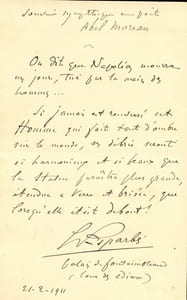 Souvenir sympathique au poète
Abel Moreau
On dit que Napoléon mourra
un jour, tué par la main des
hommes...
Si jamais est renversé cet
Homme qui fait tant d'ombre
sur le monde, ses débris seront
si harmonieux et si beaux que
la Statue paraîtra plus grande,
étendue à terre et brisée, que
lorsqu'elle était debout!
G. d'Esparbès
Palais de Fontainebleau
(Cour des adieux)
21-2-1911